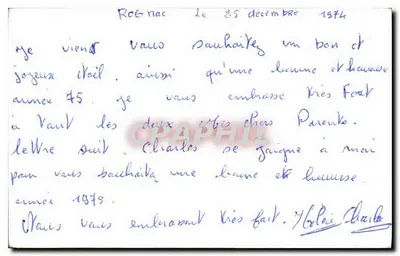 ROGNAC le 25 décembre 1974
Je viens vous souhaitez un bon et
joyeux ainsi qu'une bonne et heureuse
année 75. je vous embrasse très Fort
à tout les deux. Mes chers Parents.
lettre suit. Charles se joigne à moi
pour vous souhaitez une bonne et heureuse.
année 1975.
Nous vous embrassont très fort. Charles